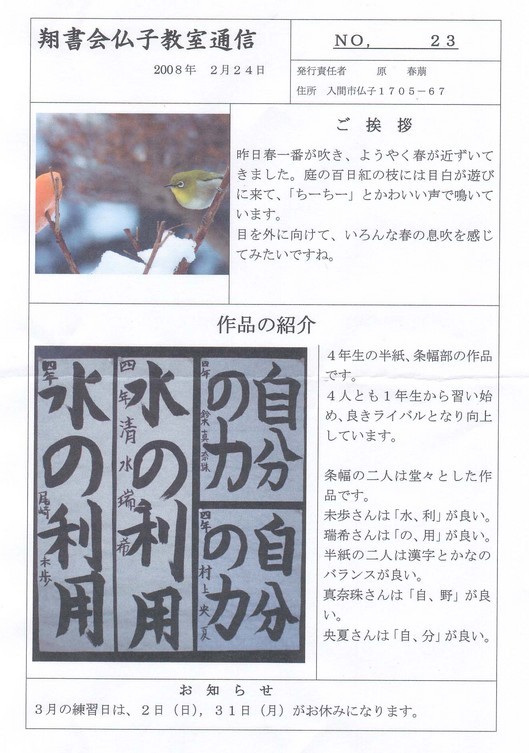 翔書会仏子教室通信
２００８年　２月２４日
ＮＯ，　　　２３
発行責任者　　原　　春萠
住所　入間市仏子１７０５－６７
ご　挨　拶
昨日春一番が吹き、ようやく春が近ずいて
きました。庭の百日紅の枝には目白が遊び
に来て、「ちーちー」とかわいい声で鳴いて
います。
目を外に向けて、いろんな春の息吹を感じ
てみたいですね。
作品の紹介
自分
の力
四年　鈴木真奈珠
自分
の力
四年　村上央夏
水の利用
四年　清水瑞希
水の利用
四年　尾崎未歩
４年生の半紙、条幅部の作品
です。
４人とも１年生から習い始
め、良きライバルとなり向上
しています。
条幅の二人は堂々とした作
品です。
未歩さんは「水、利」が良い。
瑞希さんは「の、用」が良い。
半紙の二人は漢字とかなの
バランスが良い。
真奈珠さんは「自、野」が良
い。
央夏さんは「自、分」が良い。
お　知　ら　せ
３月の練習日は、２日（日），３１日（月）がお休みになります。